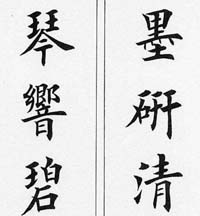 墨研清
琴響碧